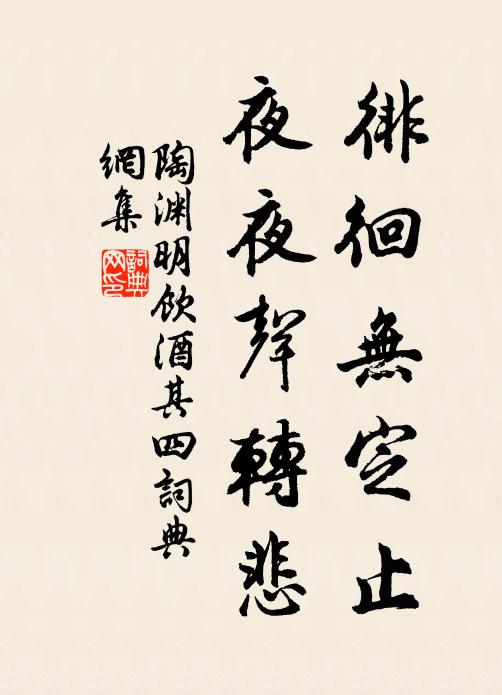 徘徊無定止
夜夜聲轉悲
陶渊明飲酒其四詞典
網集
詞典
网印